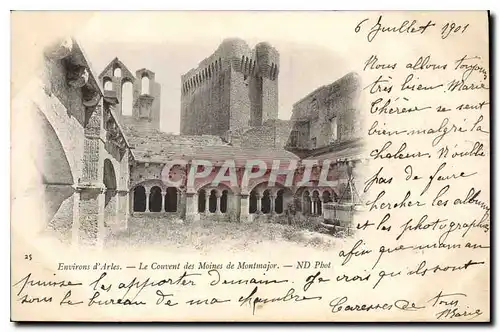 6 Juillet 1901
Nous allons toujours
très bien, Marie
Thérèse se sent
bien malgré la
chaleur. N'oublie
pas de faire
chercher les albums
et les photographies
afin que maman
puisse les apporter demain. Je crois qu'ils sont
sous le bureau de ma chambre
Caresses de tous
Marie
CPARAMA
25
Environs d'Arles. — Le Couvent des Moines de Montmajor. — ND Phot